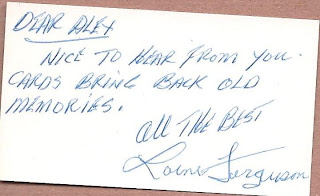 DEAR ALEX
NICE TO HEAR FROM YOU.
CARDS BRING BACK OLD
MEMORIES.
All THE BEST
Lorne Ferguson